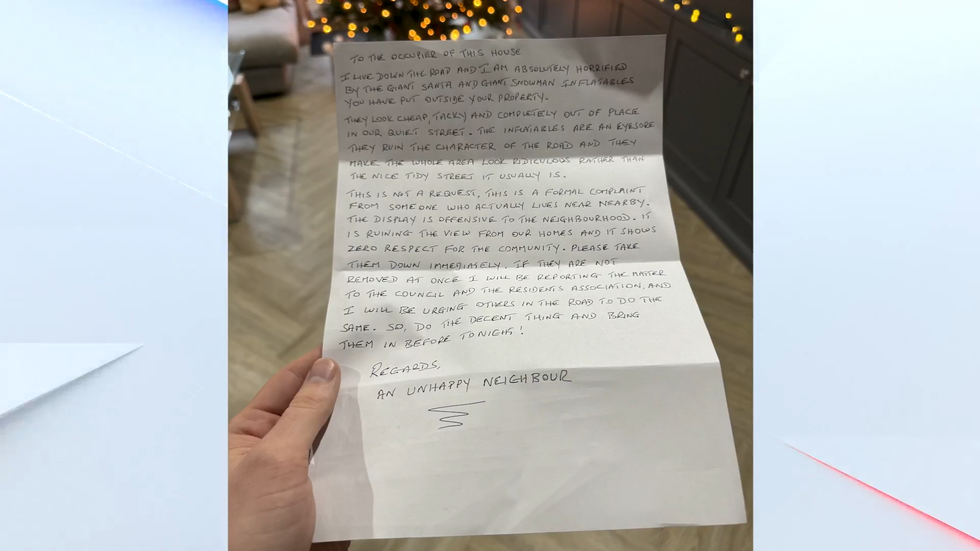 TO THE OCCUPIER OF THIS HOUSE
I LIVE DOWN THE ROAD AND I AM ABSOLUTELY HORRIFIED
BY THE GIANT SANTA AND GIANT SNOWMAN INFLATABLES
YOU HAVE PUT OUTSIDE YOUR PROPERTY.
THEY LOOK CHEAP, TACKY AND COMPLETELY OUT OF PLACE
IN OUR QUIET STREET. THE INFLATABLES ARE AN EYESORE
THEY RUIN THE CHARACTER OF THE ROAD AND THEY
MAKE THE WHOLE AREA LOOK RIDICULOUS RATHER THAN
THE NICE TIDY STREET IT USUALLY IS.
THIS IS NOT A REQUEST, THIS IS A FORMAL COMPLAINT
FROM SOMEONE WHO ACTUALLY LIVES NEAR NEARBY.
THE DISPLAY IS OFFENSIVE TO THE NEIGHBOURHOOD. IT
IS RUINING THE VIEW FROM OUR HOMES AND IT SHOWS
ZERO RESPECT FOR THE COMMUNITY. PLEASE TAKE
THEM DOWN IMMEDIATELY. IF THEY ARE NOT
REMOVED AT ONCE I WILL BE REPORTING THE MATTER
TO THE COUNCIL AND THE RESIDENTS ASSOCIATION, AND
I WILL BE URGING OTHERS IN THE ROAD TO DO THE
SAME. SO, DO THE DECENT THING AND BRING
THEM IN BEFORE TONIGHT!
REGARDS,
AN UNHAPPY NEIGHBOUR